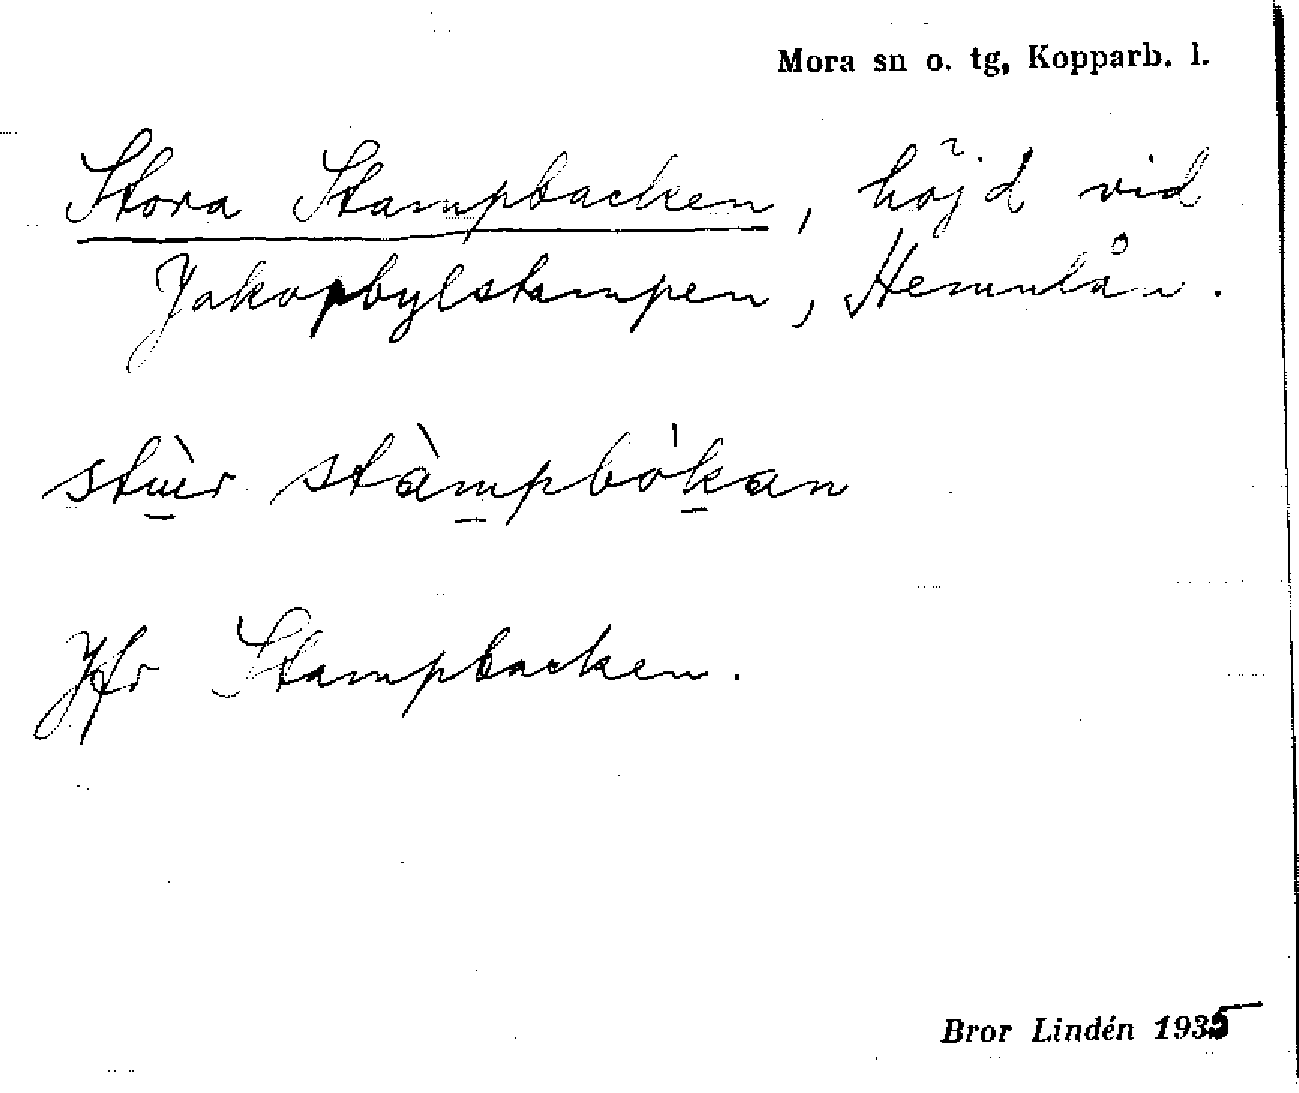 Mora sn o. tg, Kopparb. l.
Stora Stampbacken, höjd vid
Jakopbylstampen, Hemulån.
stùr stàmpbókan
Jfr Stampbacken.
Bror Lindén 1935